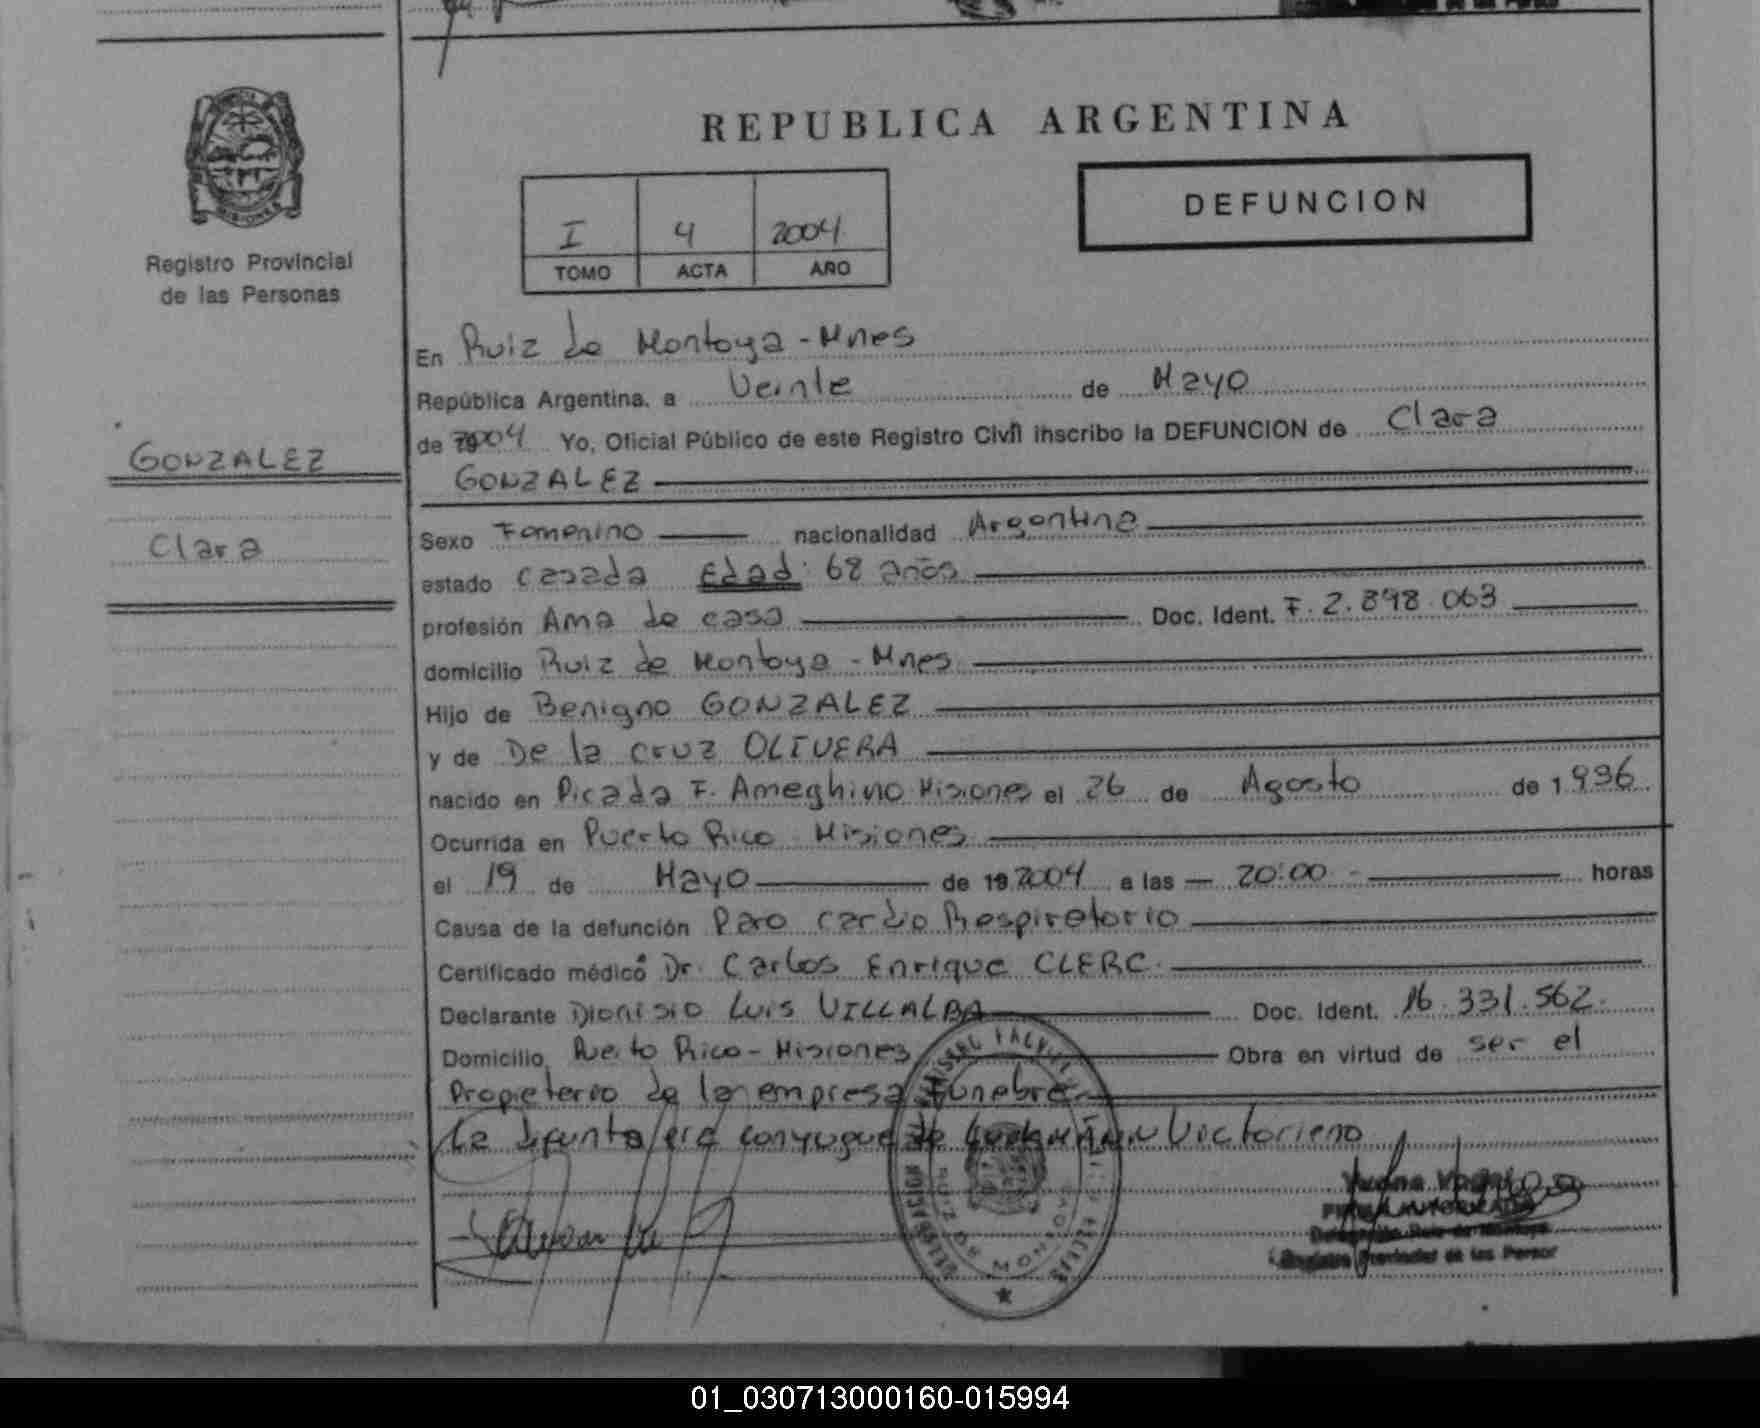 REPUBLICA ARGENTINA
DEFUNCION
I 4 2004
TOMO ACTA AÑO
Registro Provincial
de las Personas
GONZALEZ
Clara
En Ruiz de Montoya - Mnes
República Argentina, a Veinte de Mayo
de 2004 Yo, Oficial Público de este Registro Civil inscribo la DEFUNCION de Clara
GONZALEZ
Sexo Femenino nacionalidad Argentina
estado casada Edad: 68 años
profesión Ama de casa Doc. Ident. F. 2.898.063
domicilio Ruiz de Montoya - Mnes
Hijo de Benigno GONZALEZ
y de De la cruz OLIVERA
nacido en Picada F. Ameghino Misiones el 26 de Agosto de 1.936
Ocurrida en Puerto Rico - Misiones
el 19 de Mayo de 19 2004 a las 20:00 horas
Causa de la defunción Paro cardio Respiratorio
Certificado médico Dr. Carlos Enrique CLERC
Declarante Dionisio Luis VILLALBA Doc. Ident. 16.331.562.
Domicilio Puerto Rico - Misiones Obra en virtud de ser el
Propietario de la empresa Funebre
La difunta era conyugue de Victoriano
FIRMA AUTORIZADA
Delegación Ruiz de Montoya
Registro Provincial de las Person
01_030713000160-015994